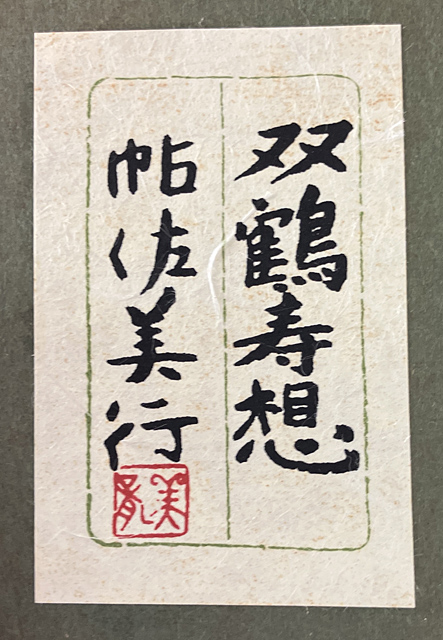 双鶴寿想
帖佐美行